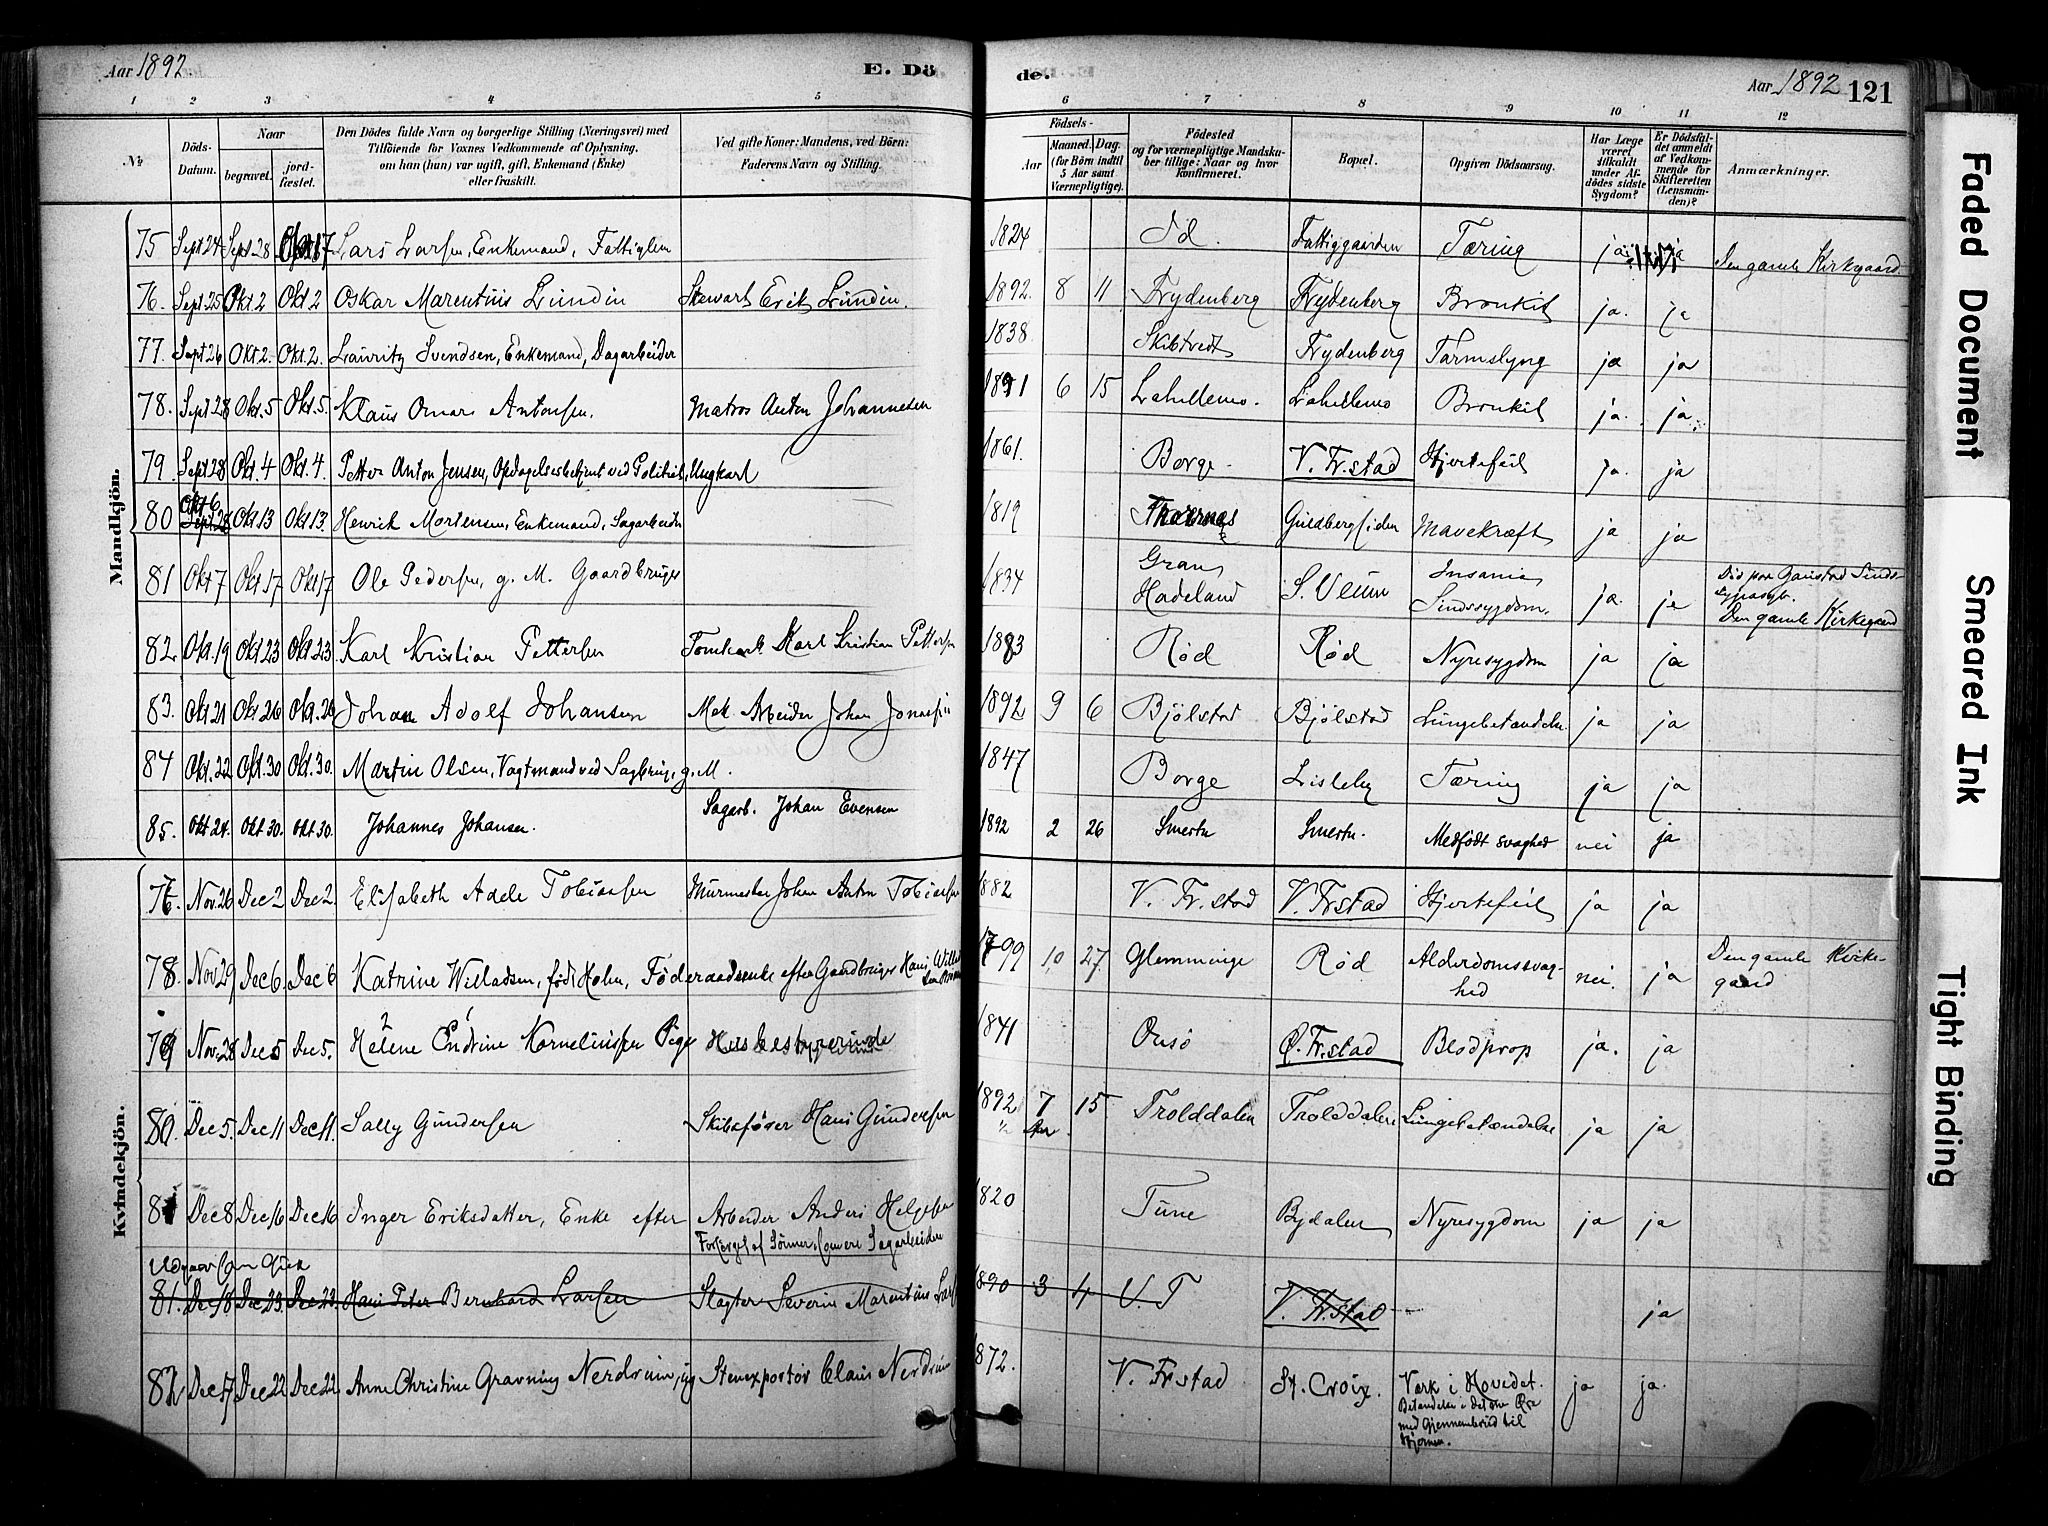 Aar 1892
E. Dö
de.
Aar 1892 121
1 2 3 4 5 6 7 8 9 10 11 12
№
Döds-Datum.
Naar
begravet.
jord-fæstet.
Den Dödes fulde Navn og borgerlige Stilling (Næringsvei) med
Tilföiende for Voxnes Vedkommende af Oplysning,
om han (hun) var ugift, gift, Enkemand (Enke)
eller fraskilt.
Ved gifte Koner: Mandens, ved Börn:
Faderens Navn og Stilling.
Födsels-
Aar
Maaned. Dag.
(for Börn indtil
5 Aar samt
Værnepligtige).
Födested
og for værnepligtige Mandska-
ber tillige: Naar og hvor
konfirmeret.
Bopæl.
Opgiven Dödsaarsag.
Har Læge
været
tilkaldt
under Af-
dödes sidste
Sygdom?
Er Dödsfal-
det anmeldt
af Vedkom-
mende for
Skifteretten
(Lensman-
den)?
Anmærkninger.
Mandkjön.
75 Sept 24 Sept 28 Okt 17 Lars Larsen, Enkemand, Fattiglem 1824 Id. Fattiggaarden Tæring ja ja Den gamle Kirkegaard
76. Sept 25 Okt 2 Okt 2 Oskar Marentius Lundin Stewart Erik Lundin. 1892. 8 11 Frydenberg Frydenberg Bronkit ja. ja
77. Sept 26 Okt 2. Okt. 2. Lauritz Svendsen, Enkemand, Dagarbeider 1838 Skibtvedt Frydenberg Tarmslyng ja ja
78. Sept 28 Okt. 5 Okt. 5. Klaus Omar Antonsen. Matros Anton Johannesen 1891 6 15 Lahellemo. Lahellemo Bronkit ja. ja.
79. Sept 28 Okt 4 Okt 4. Petter Anton Jensen, Opdagelsesbetjent ved Politiet, Ungkarl 1861. Borge. V. Fr.stad Hjertefeil ja. ja
80 Okt 6 Sept 28 Okt 13 Okt 13. Henrik Mortensen, Enkemand, Sagarbeider 1819 Guldbergsiden Mavekræft ja ja
81 Okt 7 Okt 17 Okt 17 Ole Pedersen, g. M. Gaardbruger 1834 Gran, Hadeland S. Veum Insania Sindssygdom. ja. ja Död paa Gaustad Sinds-sygeasyl. Den gamle Kirkegaard
82. Okt. 19 Okt 23 Okt 23 Karl Kristian Pettersen Karl Kristian Pettersen 1883 Rød Rød Nyresygdom ja ja
83. Okt 21 Okt 26 Okt. 26 Johan Adolf Johansen Mek Arbeider Johan 1892 9 6 Bjölstad Bjölstad Lungebetændelse ja ja
84 Okt. 22 Okt. 30 Okt. 30. Martin Olsen, Vagtmand ved Sagbrug, g. M. 1847 Borge Lisleby Tæring ja ja
85. Okt 24. Okt 30. Okt 30. Johannes Johansen. Sagarb. Johan Evensen 1892 2 26 Smertu Smertu. Medfödt svaghed nei ja
Kvindekjön.
Nov. 26 Dec 2 Dec 2 Elisabeth Adele Tobiassen Murmester Johan Anton Tobiassen 1882 V. Fr. stad V. Frstad Hjertefeil ja ja
78. Nov 29 Dec 6. Dec 6 Katrine Willadsen, födt Holm, Föderaadsenke efter Gaardbruger Hans 1799 10 27 Glemminge Rød Alderdomssvag-hed nei. ja Den gamle Kirke-gaard
79 Nov. 28 Dec 5 Dec 5. Helene Endrine Kornelinssen Pige Husbestyrerinde 1841 Onsö Ø. Fr.stad Blodprop ja. ja
80. Dec 5. Dec 11 Dec 11. Sally Gundersen Skibsfører Hans Gundersen 1892 7 15 Trolddalen Trolddalen Lungebetændelse ja ja
81 Dec 8 Dec 16 Dec 16 Inger Eriksdatter, Enke efter Arbeider Anders Helgesen 1820 Tune Bydalen Nyresygdom ja ja
Forsörget af Sönner,
81. Dec 18. Dec 23. Dec 23. Hans Peter Bernhard Larsen Slagter Severin Marentius 1890 3 4 V. F V. Fr.stad ja
82 Dec 17 Dec 22 Dec 22. Anne Christine Gravning Nerdrum, ug Stenexportör Claus Nerdrum 1872. V. Frstad St. Croix. Værk i Hovedet. Betændelse i det ene Øre med Gjennembrud til Hjernen ja ja.
Faded Document
Smeared Ink
Tight Binding